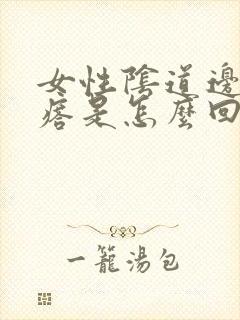 女性陰道邊
痞是怎麼回
一籠湯包